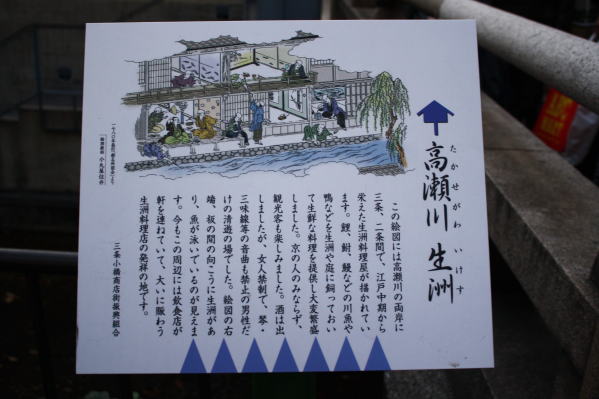 たかせがわ いけす
高瀬川 生洲
この絵図には高瀬川の両岸に
三条、二条間で、江戸中期から
栄えた生洲料理屋が描かれてい
ます。鯉、鮒、鰻などの川魚や
鴨などを生洲や庭に飼っておい
て生鮮な料理を提供し大変繁盛
しました。京の人のみならず、
観光客も楽しみました。酒は出
しましたが、女人禁制で、琴・
三味線等の音曲も禁止の男性だ
けの清遊の場でした。絵図の右
端、板の間の向こうに生洲があ
り、魚が泳いでいるのが見えま
す。今もこの周辺には飲食店が
軒を連ねていて、大いに賑わう
生洲料理店の発祥の地です。
三条小橋商店街振興組合